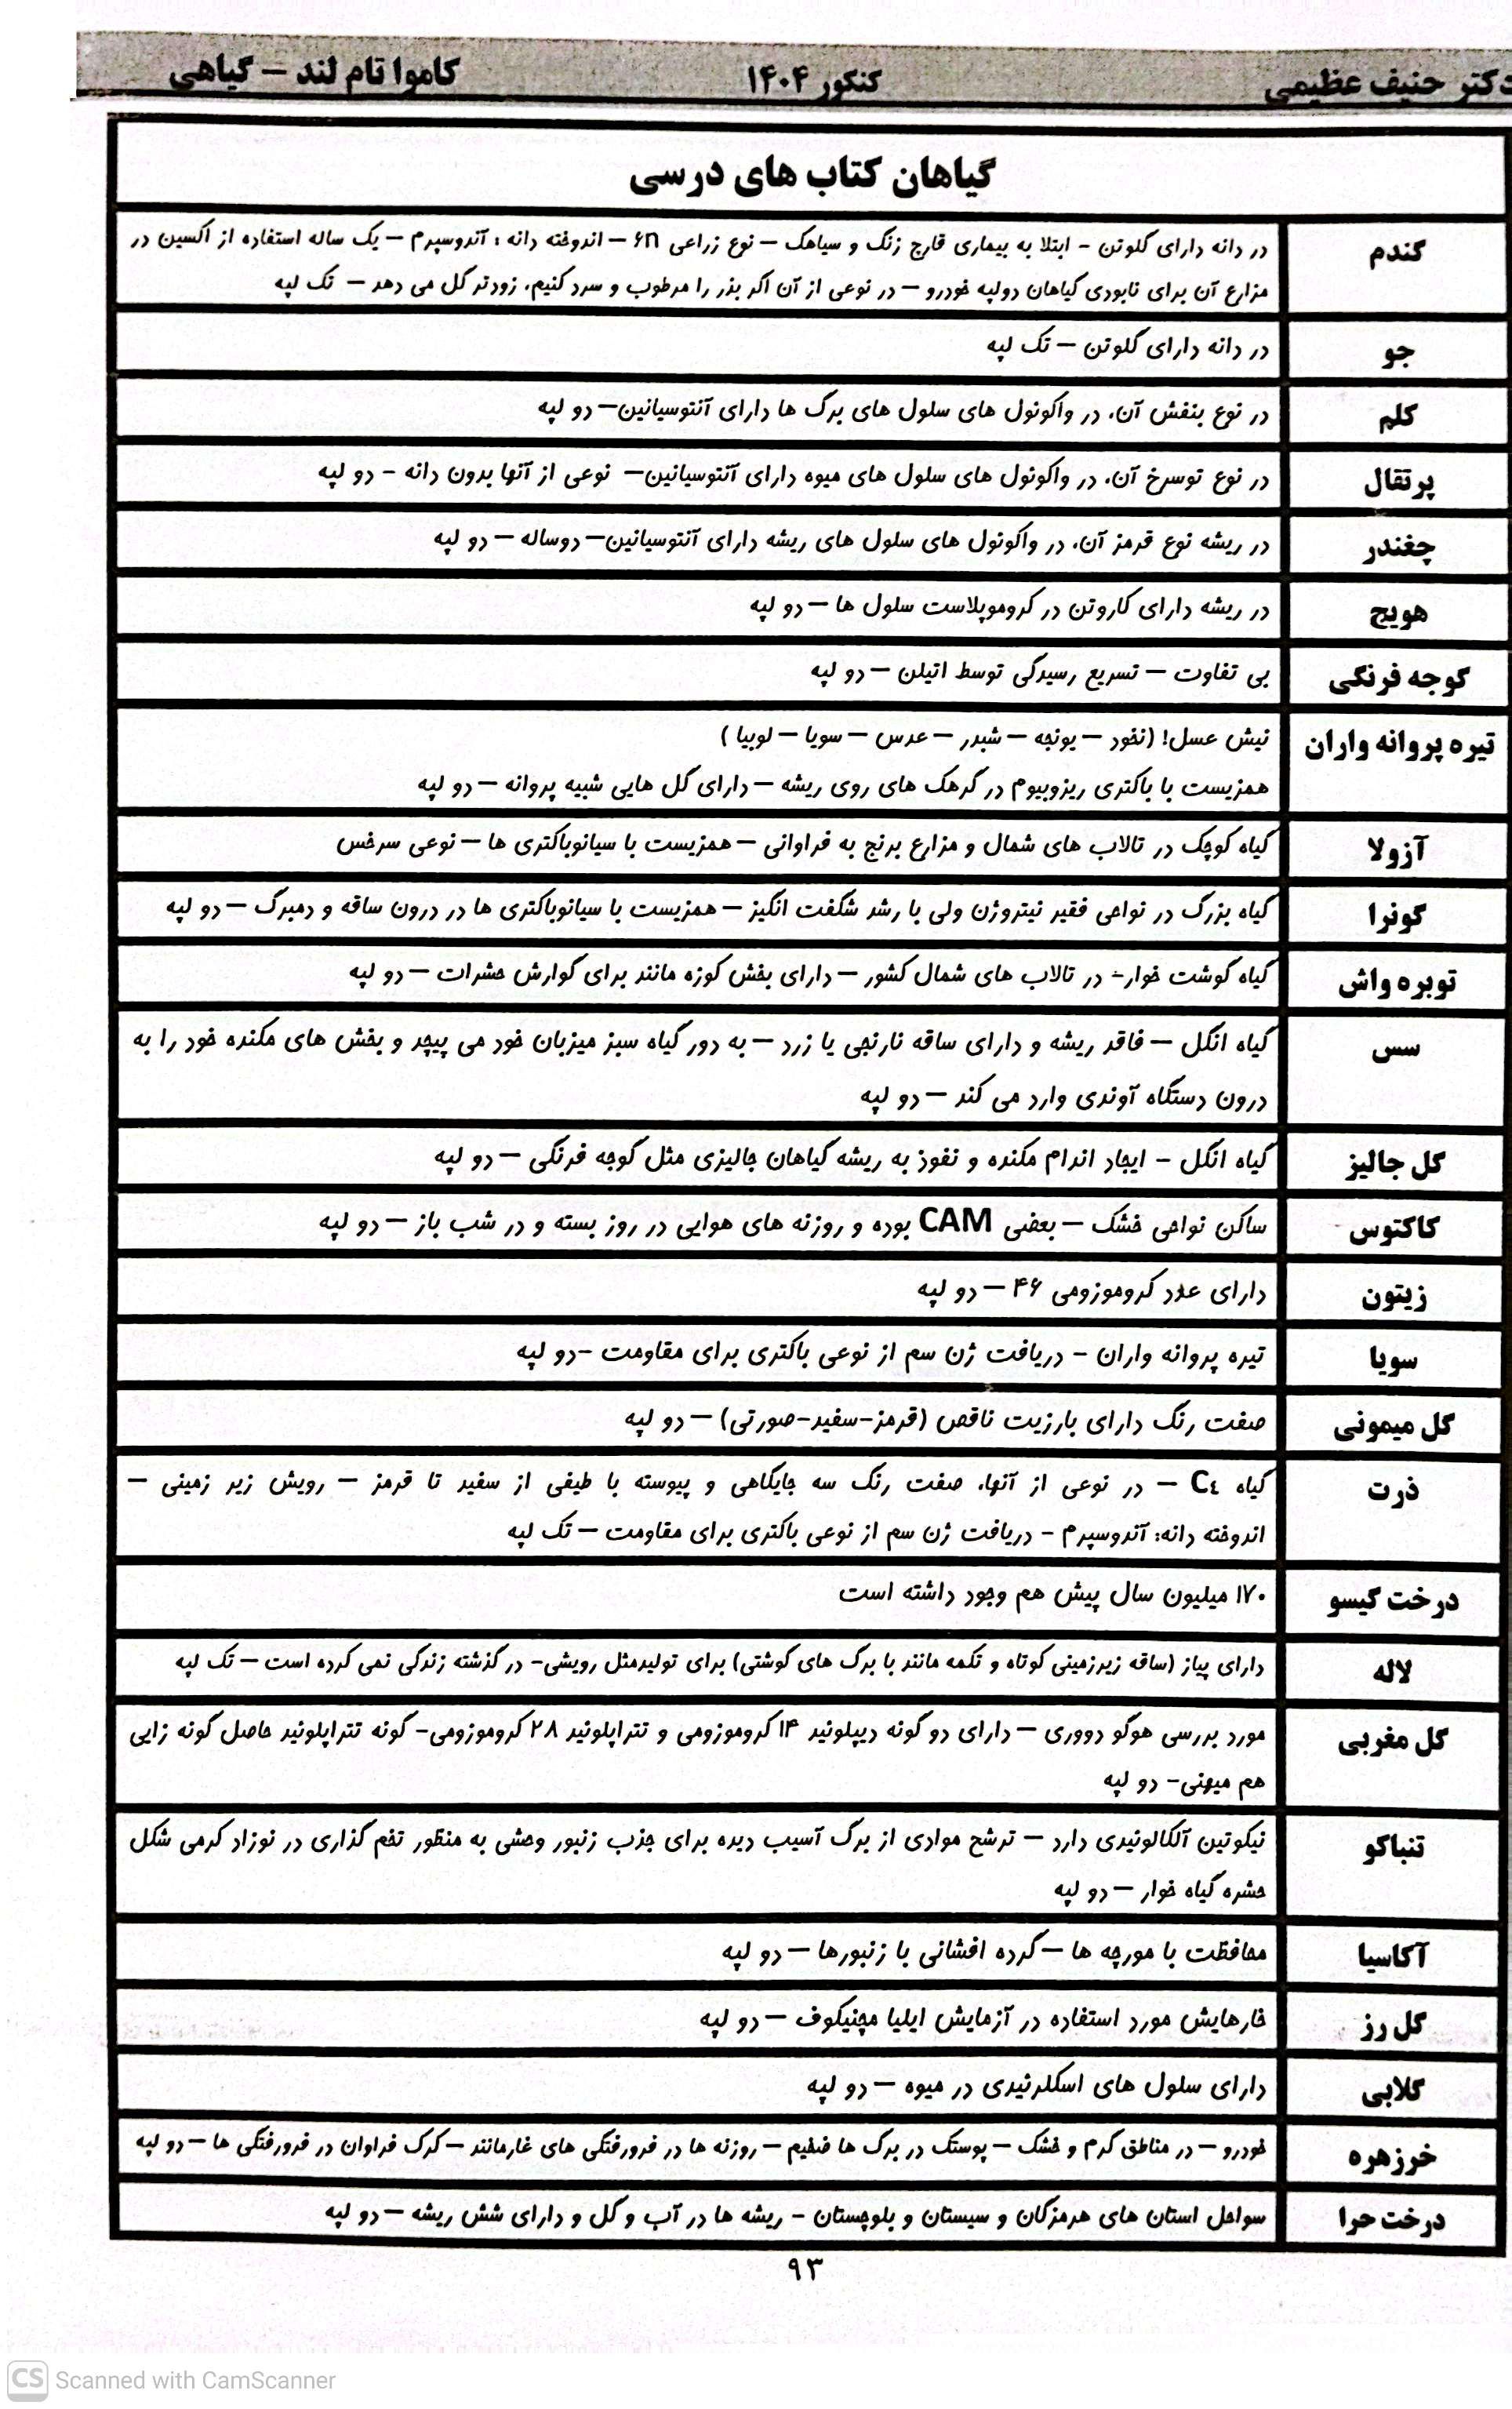 دکتر حنیف عظیمی
کنکور ۱۴۰۴
کاموا تام لند – گیاهی
گیاهان کتاب های درسی
گندم
در دانه دارای گلوتن - ابتلا به بیماری قارچ زنگ و سیاهک – نوع زراعی ۶n – اندوخته دانه : آندوسپرم – یک ساله استفاده از اکسین در
مزارع آن برای نابودی گیاهان دولپه خودرو – در نوعی از آن اگر بذر را مرطوب و سرد کنیم، زودتر گل می دهد – تک لپه
جو
در دانه دارای گلوتن – تک لپه
کلم
در نوع بنفش آن، در واکوئول های سلول های برگ ها دارای آنتوسیانین– دو لپه
پرتقال
در نوع توسرخ آن، در واکوئول های سلول های میوه دارای آنتوسیانین– نوعی از آنها بدون دانه - دو لپه
چغندر
در ریشه نوع قرمز آن، در واکوئول های سلول های ریشه دارای آنتوسیانین– دوساله – دو لپه
هویج
در ریشه دارای کاروتن در کروموپلاست سلول ها – دو لپه
گوجه فرنگی
بی تفاوت – تسریع رسیدگی توسط اتیلن – دو لپه
تیره پروانه واران
نیش عسل! (نخود – یونجه – شبدر – عدس – سویا – لوبیا )
همزیست با باکتری ریزوبیوم در گرهک های روی ریشه – دارای گل هایی شبیه پروانه – دو لپه
آزولا
گیاه کوچک در تالاب های شمال و مزارع برنج به فراوانی – همزیست با سیانوباکتری ها – نوعی سرخس
گونرا
گیاه بزرگ در نواحی فقیر نیتروژن ولی با رشد شگفت انگیز – همزیست با سیانوباکتری ها در درون ساقه و دمبرگ – دو لپه
توبره واش
گیاه گوشت خوار- در تالاب های شمال کشور – دارای بخش کوزه مانند برای گوارش حشرات – دو لپه
سس
گیاه انگل – فاقد ریشه و دارای ساقه نارنجی یا زرد – به دور گیاه سبز میزبان خود می پیچد و بخش های مکنده خود را به
درون دستگاه آوندی وارد می کند – دو لپه
گل جالیز
گیاه انگل - ایجاد اندام مکنده و نفوذ به ریشه گیاهان جالیزی مثل گوجه فرنگی – دو لپه
کاکتوس
ساکن نواحی خشک – بعضی CAM بوده و روزنه های هوایی در روز بسته و در شب باز – دو لپه
زیتون
دارای عدد کروموزومی ۴۶ – دو لپه
سویا
تیره پروانه واران - دریافت ژن سم از نوعی باکتری برای مقاومت -دو لپه
گل میمونی
صفت رنگ دارای بارزیت ناقص (قرمز-سفید-صورتی) – دو لپه
ذرت
گیاه C٤ – در نوعی از آنها، صفت رنگ سه جایگاهی و پیوسته با طیفی از سفید تا قرمز – رویش زیر زمینی –
اندوخته دانه: آندوسپرم - دریافت ژن سم از نوعی باکتری برای مقاومت – تک لپه
درخت گیسو
۱۷۰ میلیون سال پیش هم وجود داشته است
لاله
دارای پیاز (ساقه زیرزمینی کوتاه و تکمه مانند با برگ های گوشتی) برای تولیدمثل رویشی- در گذشته زندگی نمی کرده است – تک لپه
گل مغربی
مورد بررسی هوگو دووری – دارای دو گونه دیپلوئید ۱۴ کروموزومی و تتراپلوئید ۲۸ کروموزومی- گونه تتراپلوئید حاصل گونه زایی
هم میهنی- دو لپه
تنباکو
نیکوتین آلکالوئیدی دارد – ترشح موادی از برگ آسیب دیده برای جذب زنبور وحشی به منظور تخم گذاری در نوزاد کرمی شکل
حشره گیاه خوار – دو لپه
آکاسیا
محافظت با مورچه ها – گرده افشانی با زنبورها – دو لپه
گل رز
خارهایش مورد استفاده در آزمایش ایلیا مچنیکوف – دو لپه
گلابی
دارای سلول های اسکلرئیدی در میوه – دو لپه
خرزهره
خودرو – در مناطق گرم و خشک – پوستک در برگ ها ضخیم – روزنه ها در فرورفتگی های غارمانند – کرک فراوان در فرورفتگی ها – دو لپه
درخت حرا
سواحل استان های هرمزگان و سیستان و بلوچستان - ریشه ها در آب و گل و دارای شش ریشه – دو لپه
۹۳
CS Scanned with CamScanner